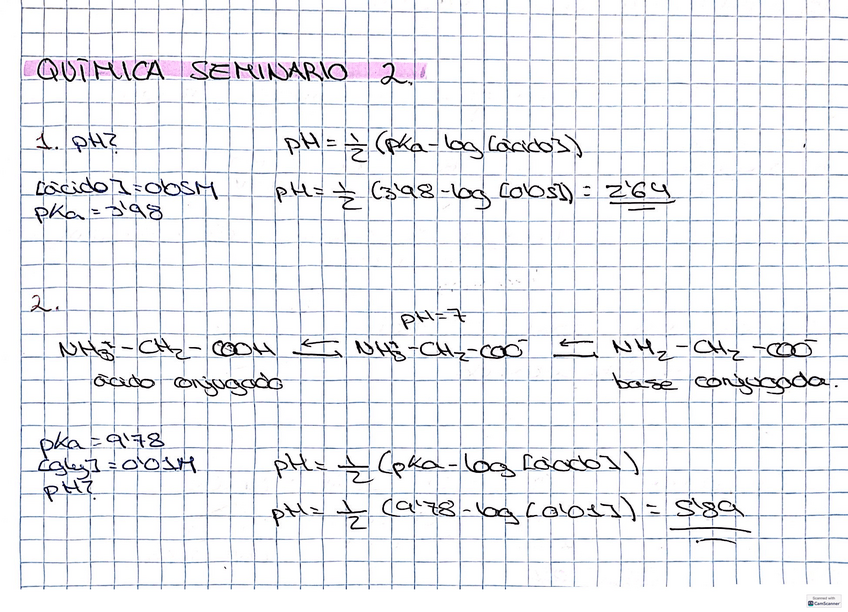 QUÍMICA SEMINARIO 2.
1. pH?
pH = 1/2 (pKa - log [ácido])
[ácido] = 0'05M
pH = 1/2 (3'98 - log [0'05]) = 2'64
pKa = 3'98
2.
pH = 7
NH3+ - CH2 - COOH ⇆ NH3+ - CH2 - COO- ⇆ NH2 - CH2 - COO-
ácido conjugado
base conjugada.
pKa = 9'78
[gly] = 0'01M
pH = 1/2 (pKa - log [ácido])
pH?
pH = 1/2 (9'78 - log [0'01]) = 5'89
Scanned with
CS CamScanner